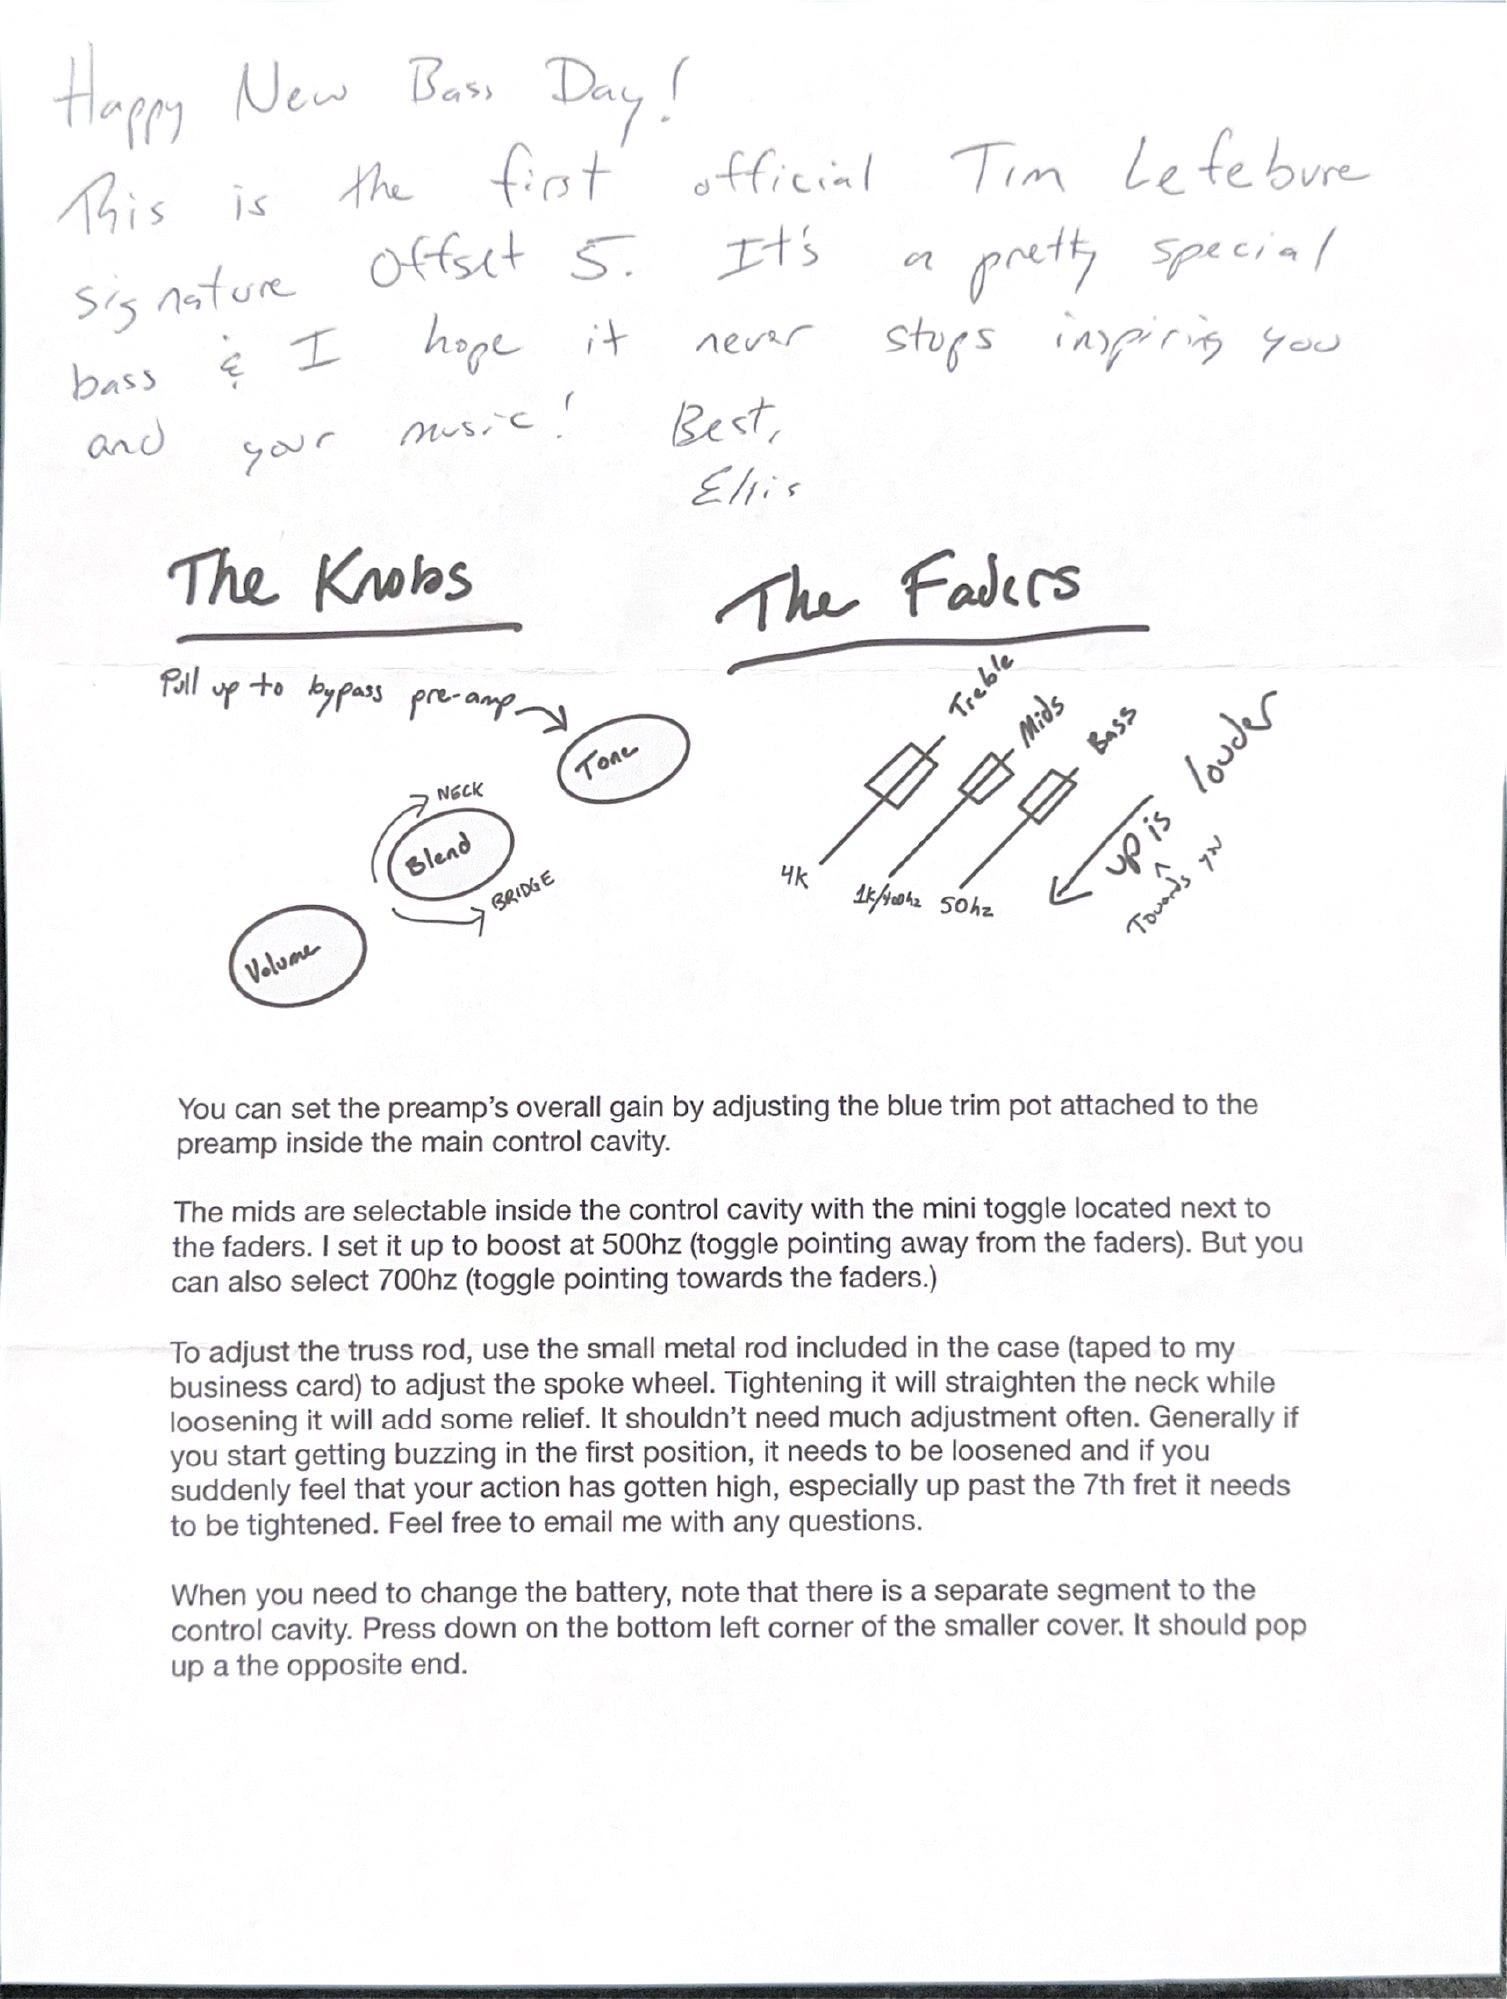 Happy New Bass Day!
This is the first official Tim Lefebvre
signature Offset 5. It's a pretty special
bass & I hope it never stops inspiring you
and your music! Best,
Ellis
The Knobs
The Faders
Pull up to bypass pre-amp
Tone
NECK
Blend
BRIDGE
Volume
Treble
Mids
Bass
4K
1K/400hz
50hz
up is louder
Towards
You can set the preamp’s overall gain by adjusting the blue trim pot attached to the
preamp inside the main control cavity.
The mids are selectable inside the control cavity with the mini toggle located next to
the faders. I set it up to boost at 500hz (toggle pointing away from the faders). But you
can also select 700hz (toggle pointing towards the faders.)
To adjust the truss rod, use the small metal rod included in the case (taped to my
business card) to adjust the spoke wheel. Tightening it will straighten the neck while
loosening it will add some relief. It shouldn’t need much adjustment often. Generally if
you start getting buzzing in the first position, it needs to be loosened and if you
suddenly feel that your action has gotten high, especially up past the 7th fret it needs
to be tightened. Feel free to email me with any questions.
When you need to change the battery, note that there is a separate segment to the
control cavity. Press down on the bottom left corner of the smaller cover. It should pop
up a the opposite end.